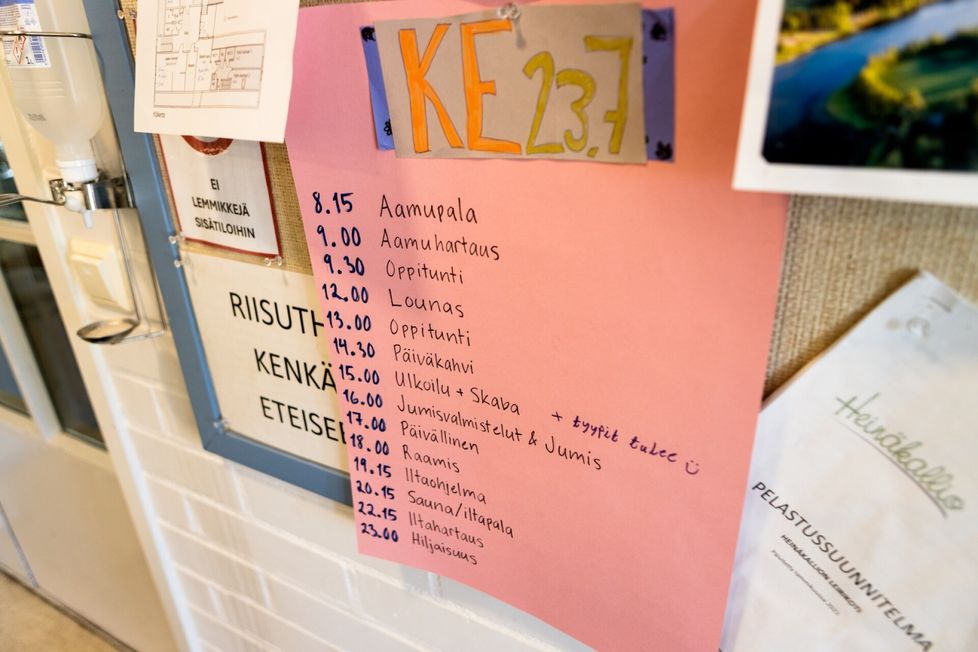 KE 23.7
8.15 Aamupala
9.00 Aamuhartaus
9.30 Oppitunti
12.00 Lounas
13.00 Oppitunti
14.30 Päiväkahvi
15.00 Ulkoilu + Skaba + tyypit tulee
16.00 Jumisvalmistelut & Jumis
17.00 Päivällinen
18.00 Raamis
19.15 Iltaohjelma
20.15 Sauna/iltapala
22.15 Iltahartaus
23.00 Hiljaisuus
EI
LEMMIKKEJÄ
SISÄTILOIHIN
RIISUTH
KENKÄ
ETEISEE
Heinäkallio
PELASTUSSUUNNITELMA
HEINÄKALLION LEIRIKOTI